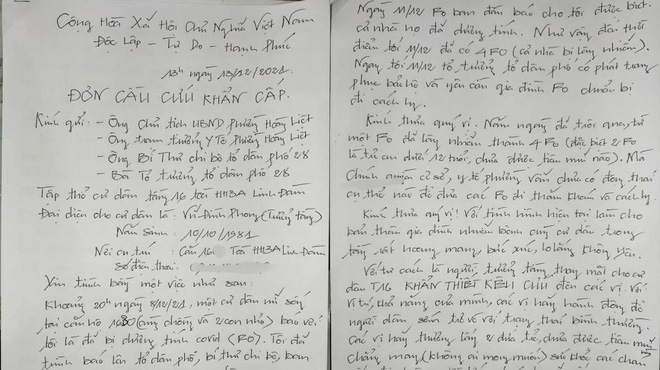 Cộng Hòa Xã Hội Chủ Nghĩa Việt Nam
Độc Lập - Tự Do - Hạnh Phúc
13h ngày 13/12/2021.
ĐƠN CẦU CỨU KHẨN CẤP.
Kính gửi: - Ông Chủ tịch UBND Phường Hoàng Liệt
- Ông trạm trưởng Y Tế Phường Hoàng Liệt
- Ông Bí Thư chi bộ tổ dân phố 28
- Bà Tổ trưởng tổ dân phố 28
Tập thể cư dân tầng 16 tòa HH3A Linh Đàm
Đại diện cho cư dân là: Vũ Đình Phong (Trưởng tầng)
Năm Sinh: 10/10/1981
Nơi cư trú: Căn 16 Toà HH3A Linh Đàm
Số điện thoại:
Xin trình bày một việc như sau:
Khoảng 20h ngày 8/12/21, một cư dân nữ sống
tại căn hộ (cùng chồng và 2 con nhỏ) báo với
tôi là đã bị dương tính covid (F0). Tôi đã
trình báo lên tổ dân phố, bí thư chi bộ, ban
Ngày 11/12 F0 ban đầu báo cho tôi được biết
cả nhà họ đã dương tính. Như vậy đến thời
điểm tối 11/12 đã có 4 F0 (cả nhà bị lây nhiễm).
Ngay tối 11/12 tổ trưởng tổ dân phố có phát trang
phục bảo hộ và yêu cầu gia đình F0 chuẩn bị
đi cách ly.
Kính thưa quý vị. Năm ngày đã trôi qua, từ
một F0 đã lây nhiễm thành 4 F0 (đặc biệt 2 F0
là trẻ em dưới 12 tuổi, chưa được tiêm mũi nào). Mà
Chính quyền cơ sở, y tế phường vẫn chưa có động thái
cụ thể nào để đưa các F0 đi thăm khám và cách ly.
Kính thưa quý vị! Với tình hình hiện tại làm cho
bản thân gia đình nhiễm bệnh cùng cư dân trong
tầng rất hoang mang, bức xúc, lo lắng không yên.
Với tư cách là người trưởng tầng thay mặt cho cư
dân T16 KHẨN THIẾT KÊU CỨU đến các vị. Với
vị trí, khả năng của mình, các vị hãy hành động để
người dân sớm trở về với trạng thái bình thường.
Các vị hãy thương lấy 2 đứa trẻ, chưa được tiêm mũi
chẳng may (không ai mong muốn) sức khỏe các cháu